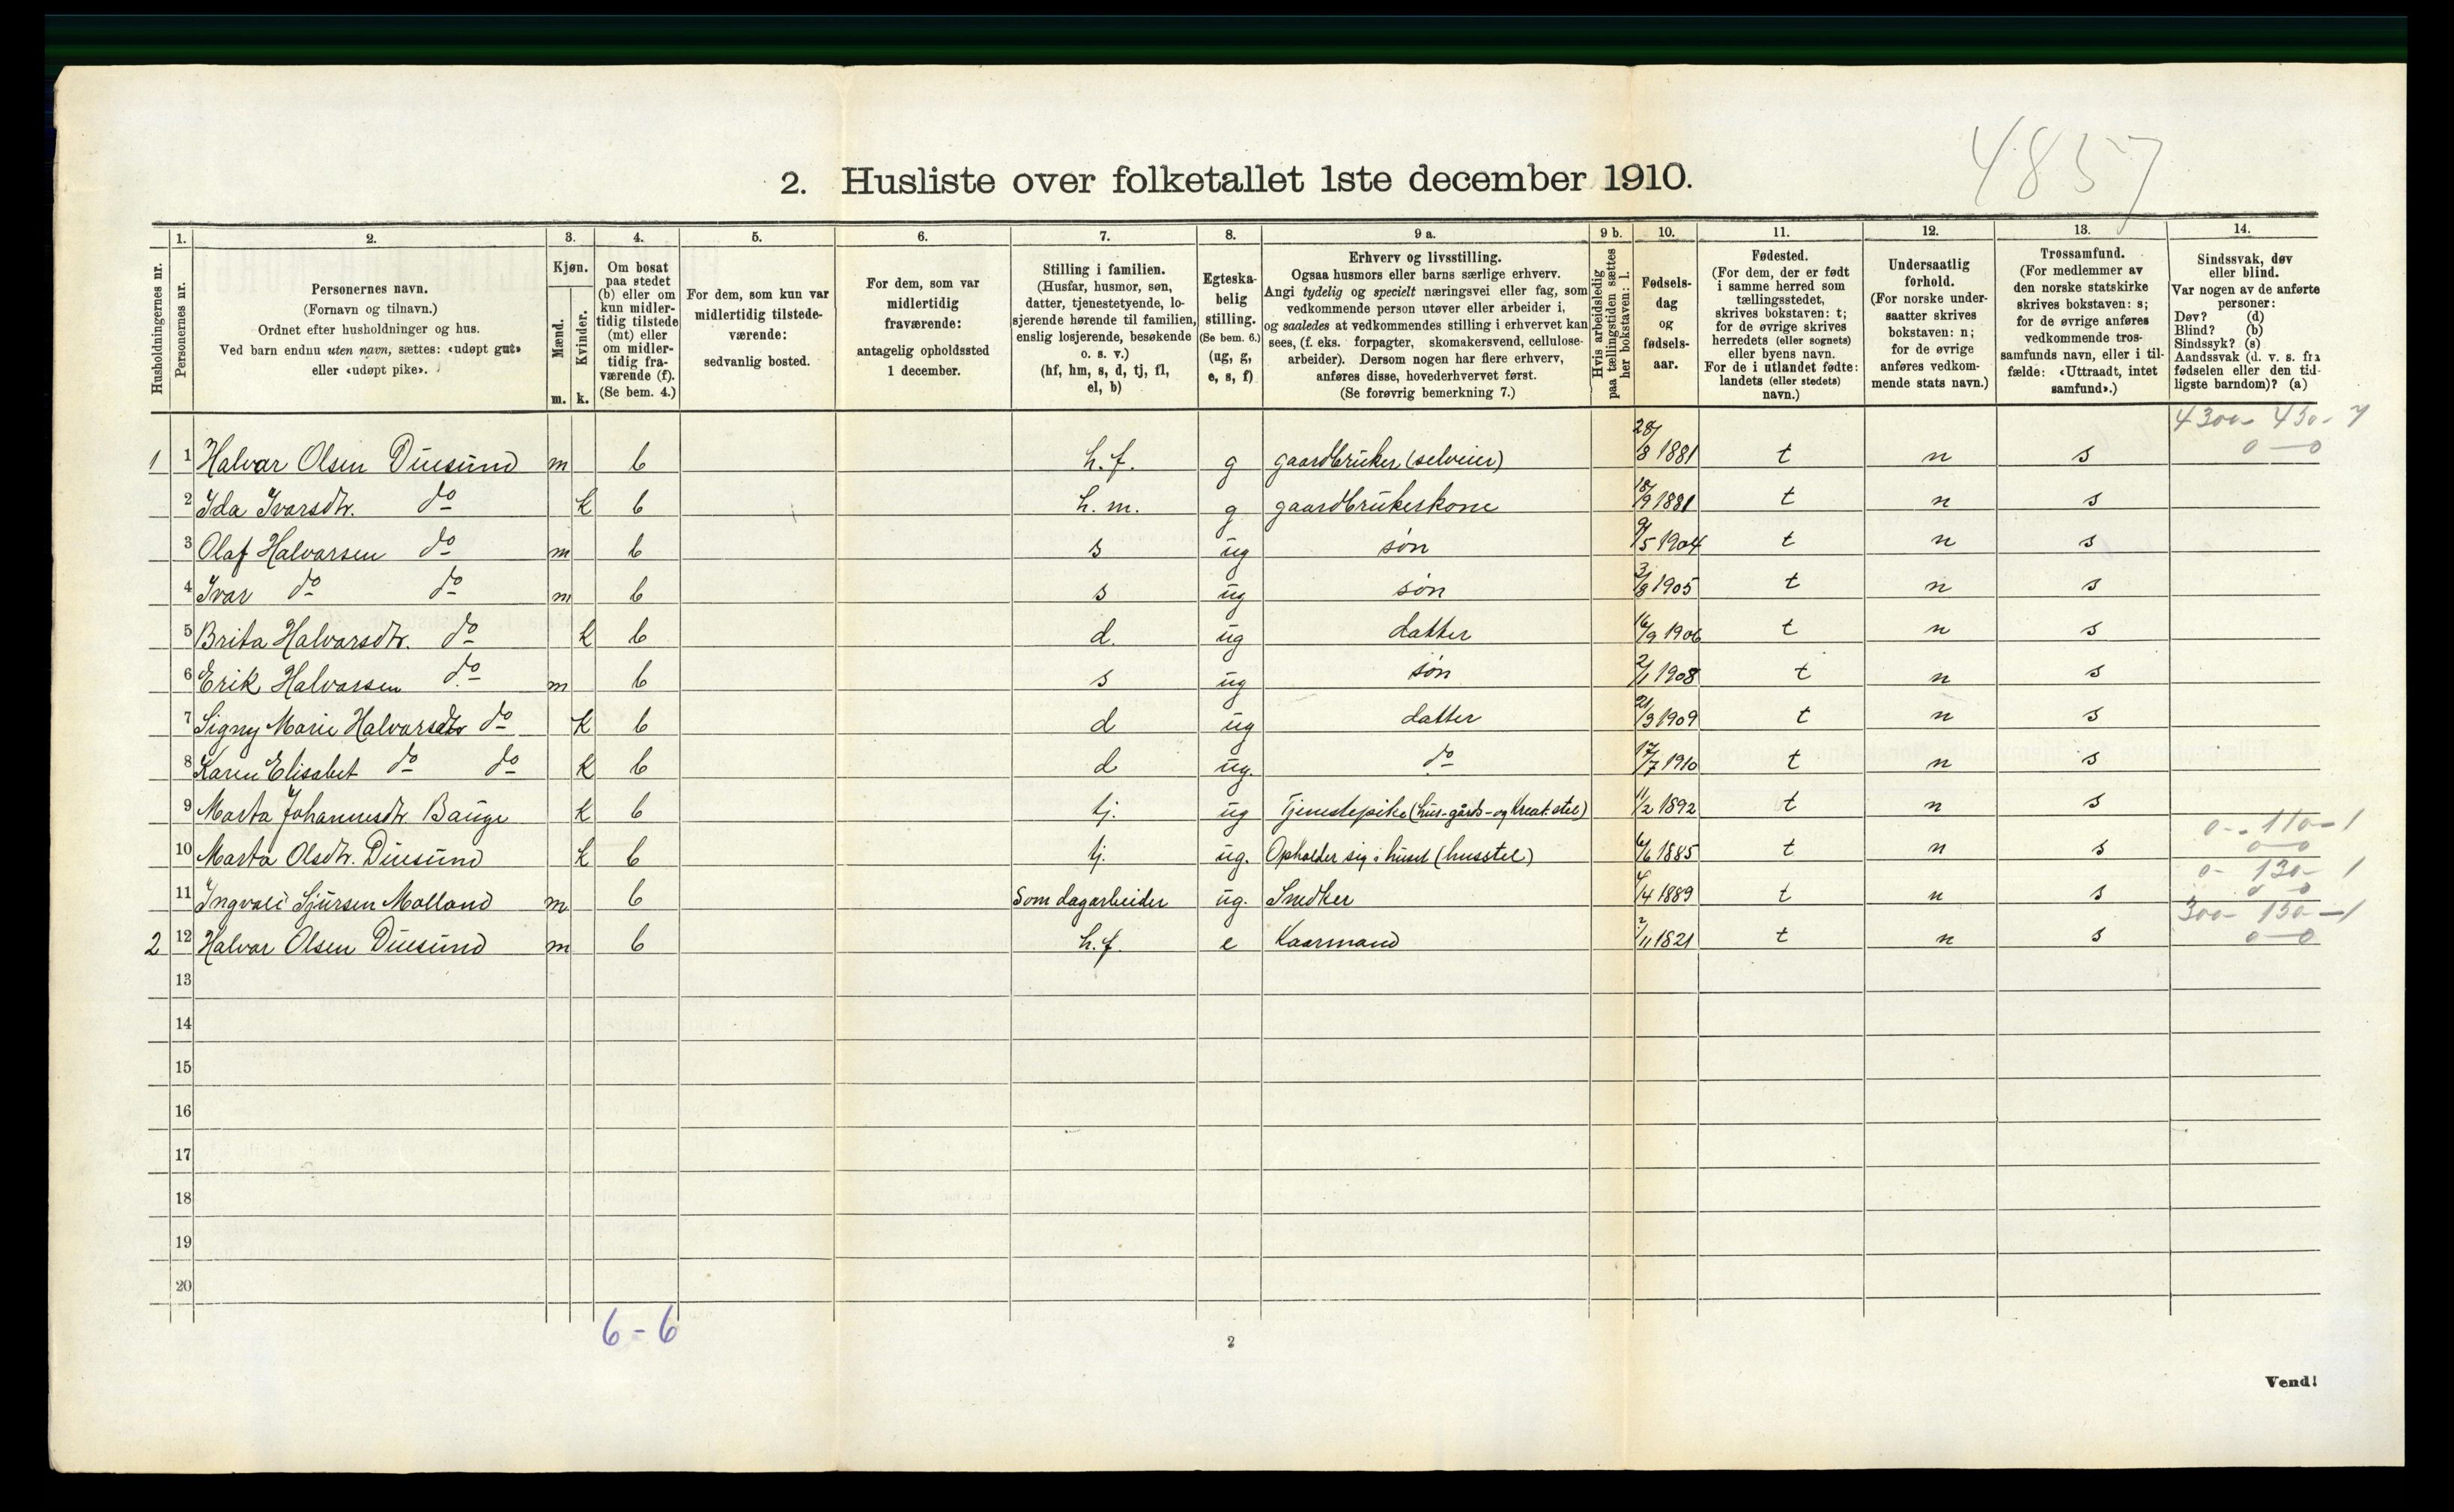 4857
2. Husliste over folketallet 1ste december 1910.
Husholdningernes nr.
1.
Personernes nr.
2.
Personernes navn.
(Fornavn og tilnavn.)
Ordnet efter husholdninger og hus.
Ved barn endnu uten navn, sættes: «udøpt gut»
eller «udøpt pike».
3.
Kjøn.
Mænd.
Kvinder.
m. k.
4.
Om bosat
paa stedet
(b) eller om
kun midler-
tidig tilstede
(mt) eller
om midler-
tidig fra-
værende (f).
(Se bem. 4.)
5.
For dem, som kun var
midlertidig tilstede-
værende:
sedvanlig bosted.
6.
For dem, som var
midlertidig
fraværende:
antagelig opholdssted
1 december.
7.
Stilling i familien.
(Husfar, husmor, søn,
datter, tjenestetyende, lo-
sjerende hørende til familien,
enslig losjerende, besøkende
o. s. v.)
(hf, hm, s, d, tj, fl,
el, b)
8.
Egteska-
belig
stilling.
(Se bem. 6.)
(ug, g,
e, s, f)
9 a.
Erhverv og livsstilling.
Ogsaa husmors eller barns særlige erhverv.
Angi tydelig og specielt næringsvei eller fag, som
vedkommende person utøver eller arbeider i,
og saaledes at vedkommendes stilling i erhvervet kan
sees, (f. eks. forpagter, skomakersvend, cellulose-
arbeider). Dersom nogen har flere erhverv,
anføres disse, hovederhvervet først.
(Se forøvrig bemerkning 7.)
9 b.
Hvis arbeidsledig
paa tællingstiden sættes
her bokstaven: l.
10.
Fødsels-
dag
og
fødsels-
aar.
11.
Fødested.
(For dem, der er født
i samme herred som
tællingsstedet,
skrives bokstaven: t;
for de øvrige skrives
herredets (eller sognets)
eller byens navn.
For de i utlandet fødte:
landets (eller stedets)
navn.)
12.
Undersaatlig
forhold.
(For norske under-
saatter skrives
bokstaven: n;
for de øvrige
anføres vedkom-
mende stats navn.)
13.
Trossamfund.
(For medlemmer av
den norske statskirke
skrives bokstaven: s;
for de øvrige anføres
vedkommende tros-
samfunds navn, eller i til-
fælde: «Uttraadt, intet
samfund».)
14.
Sindssvak, døv
eller blind.
Var nogen av de anførte
personer:
Døv? (d)
Blind? (b)
Sindssyk? (s)
Aandssvak (d. v. s. fra
fødselen eller den tid-
ligste barndom)? (a)
1 1 Halvar Olsen Duesund m b h.f. g gaardbruker (selveier) 28/8 1881 t n s 4300- 450- 7 0-0
2 Ida Ivarsdtr. do k b h.m. g gaardbrukerskone 18/9 1881 t n s
3 Olaf Halvarsen do m b s ug søn 9/5 1904 t n s
4 Ivar do do m b s ug søn 3/8 1905 t n s
5 Brita Halvarsdtr. do k b d. ug datter 16/9 1906 t n s
6 Erik Halvarsen do m b s ug søn 2/1 1908 t n s
7 Signy Marie Halvarsdtr do k b d ug datter 21/3 1909 t n s
8 Karen Elisabet do do k b d ug. do 17/7 1910 t n s
9 Marta Johannesdtr Bauge k b tj. ug Tjenestepike (hus-gårds-og Kreat.stel) 11/2 1892 t n s
10 Marta Olsdtr. Duesund k b tj. ug. Opholder sig i huset (husstel) 6/6 1885 t n s 0-110-1 0-0
11 Ingvald Sjursen Molland m b Som dagarbeider ug. Snedker /4 1889 t n s 0-130-1 0-0
2 12 Halvar Olsen Duesund m b h.f. e Kaarmand 2/11 1821 t n s 300-150-1 0-0
13
14
15
16
17
18
19
20
6-6
2
Vend!